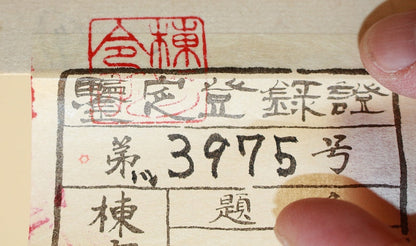 棟令
鑒定登録證
第3975号
題
棟